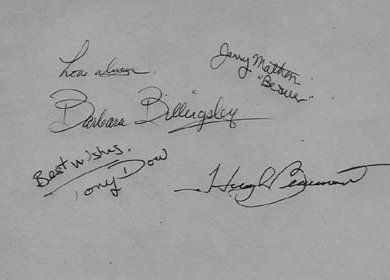 Love always
Jerry Mathers
"Beaver"
Barbara Billingsley
Best Wishes,
Tony Dow
Hugh Beaumont